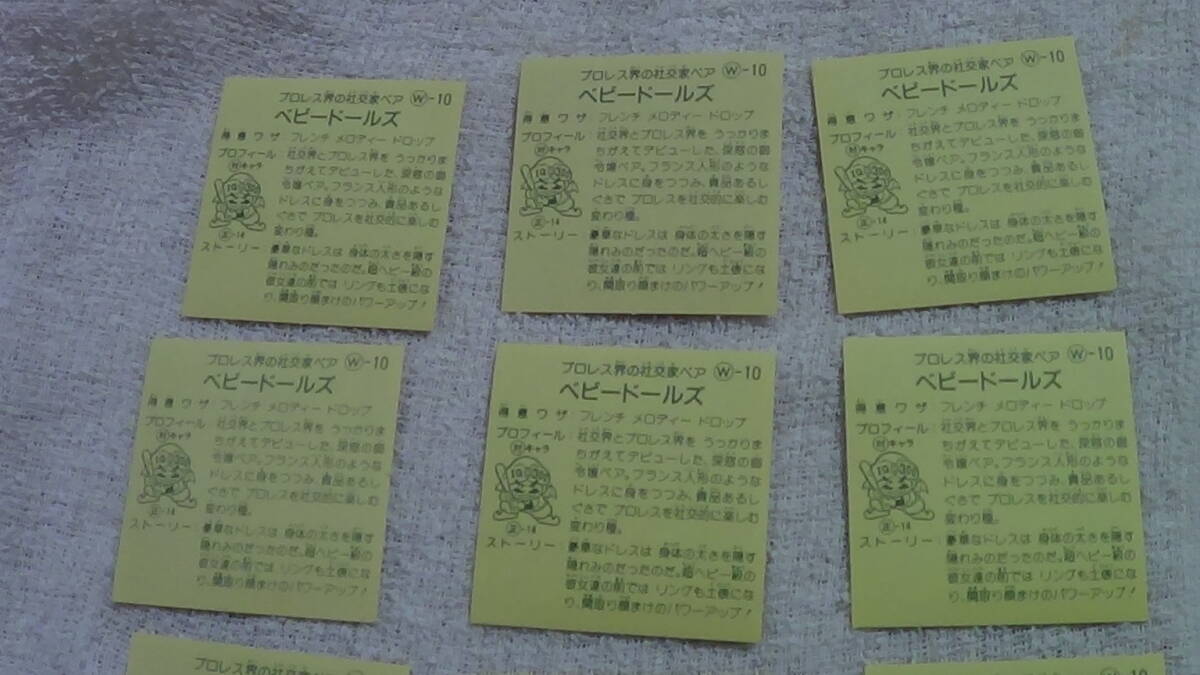 プロレス界の社交家ペア Ⓦ-10
ベビードールズ
得意ワザ フレンチ メロディー ドロップ
プロフィール 社交界とプロレス界を うっかりま
ちがえてデビューした、深窓の御
令嬢ペア。フランス人形のような
ドレスに身をつつみ、貴品あるし
ぐさで プロレスを社交的に楽しむ
変わり種。
対キャラ
正-14
ストーリー 豪華なドレスは 身体の太さを隠す
隠れみのだったのだ。超ヘビー級の
彼女達の前では リングも土俵にな
り、関取り顔まけのパワーアップ！
プロレス界の社交家ペア Ⓦ-10
ベビードールズ
得意ワザ フレンチ メロディー ドロップ
プロフィール 社交界とプロレス界を うっかりま
ちがえてデビューした、深窓の御
令嬢ペア。フランス人形のような
ドレスに身をつつみ、貴品あるし
ぐさで プロレスを社交的に楽しむ
変わり種。
対キャラ
正-14
ストーリー 豪華なドレスは 身体の太さを隠す
隠れみのだったのだ。超ヘビー級の
彼女達の前では リングも土俵にな
り、関取り顔まけのパワーアップ！
プロレス界の社交家ペア Ⓦ-10
ベビードールズ
得意ワザ フレンチ メロディー ドロップ
プロフィール 社交界とプロレス界を うっかりま
ちがえてデビューした、深窓の御
令嬢ペア。フランス人形のような
ドレスに身をつつみ、貴品あるし
ぐさで プロレスを社交的に楽しむ
変わり種。
対キャラ
正-14
ストーリー 豪華なドレスは 身体の太さを隠す
隠れみのだったのだ。超ヘビー級の
彼女達の前では リングも土俵にな
り、関取り顔まけのパワーアップ！
プロレス界の社交家ペア Ⓦ-10
ベビードールズ
得意ワザ フレンチ メロディー ドロップ
プロフィール 社交界とプロレス界を うっかりま
ちがえてデビューした、深窓の御
令嬢ペア。フランス人形のような
ドレスに身をつつみ、貴品あるし
ぐさで プロレスを社交的に楽しむ
変わり種。
対キャラ
正-14
ストーリー 豪華なドレスは 身体の太さを隠す
隠れみのだったのだ。超ヘビー級の
彼女達の前では リングも土俵にな
り、関取り顔まけのパワーアップ！
プロレス界の社交家ペア Ⓦ-10
ベビードールズ
得意ワザ フレンチ メロディー ドロップ
プロフィール 社交界とプロレス界を うっかりま
ちがえてデビューした、深窓の御
令嬢ペア。フランス人形のような
ドレスに身をつつみ、貴品あるし
ぐさで プロレスを社交的に楽しむ
変わり種。
対キャラ
正-14
ストーリー 豪華なドレスは 身体の太さを隠す
隠れみのだったのだ。超ヘビー級の
彼女達の前では リングも土俵にな
り、関取り顔まけのパワーアップ！
プロレス界の社交家ペア Ⓦ-10
ベビードールズ
得意ワザ フレンチ メロディー ドロップ
プロフィール 社交界とプロレス界を うっかりま
ちがえてデビューした、深窓の御
令嬢ペア。フランス人形のような
ドレスに身をつつみ、貴品あるし
ぐさで プロレスを社交的に楽しむ
変わり種。
対キャラ
正-14
ストーリー 豪華なドレスは 身体の太さを隠す
隠れみのだったのだ。超ヘビー級の
彼女達の前では リングも土俵にな
り、関取り顔まけのパワーアップ！
プロレス界の社交家ペア